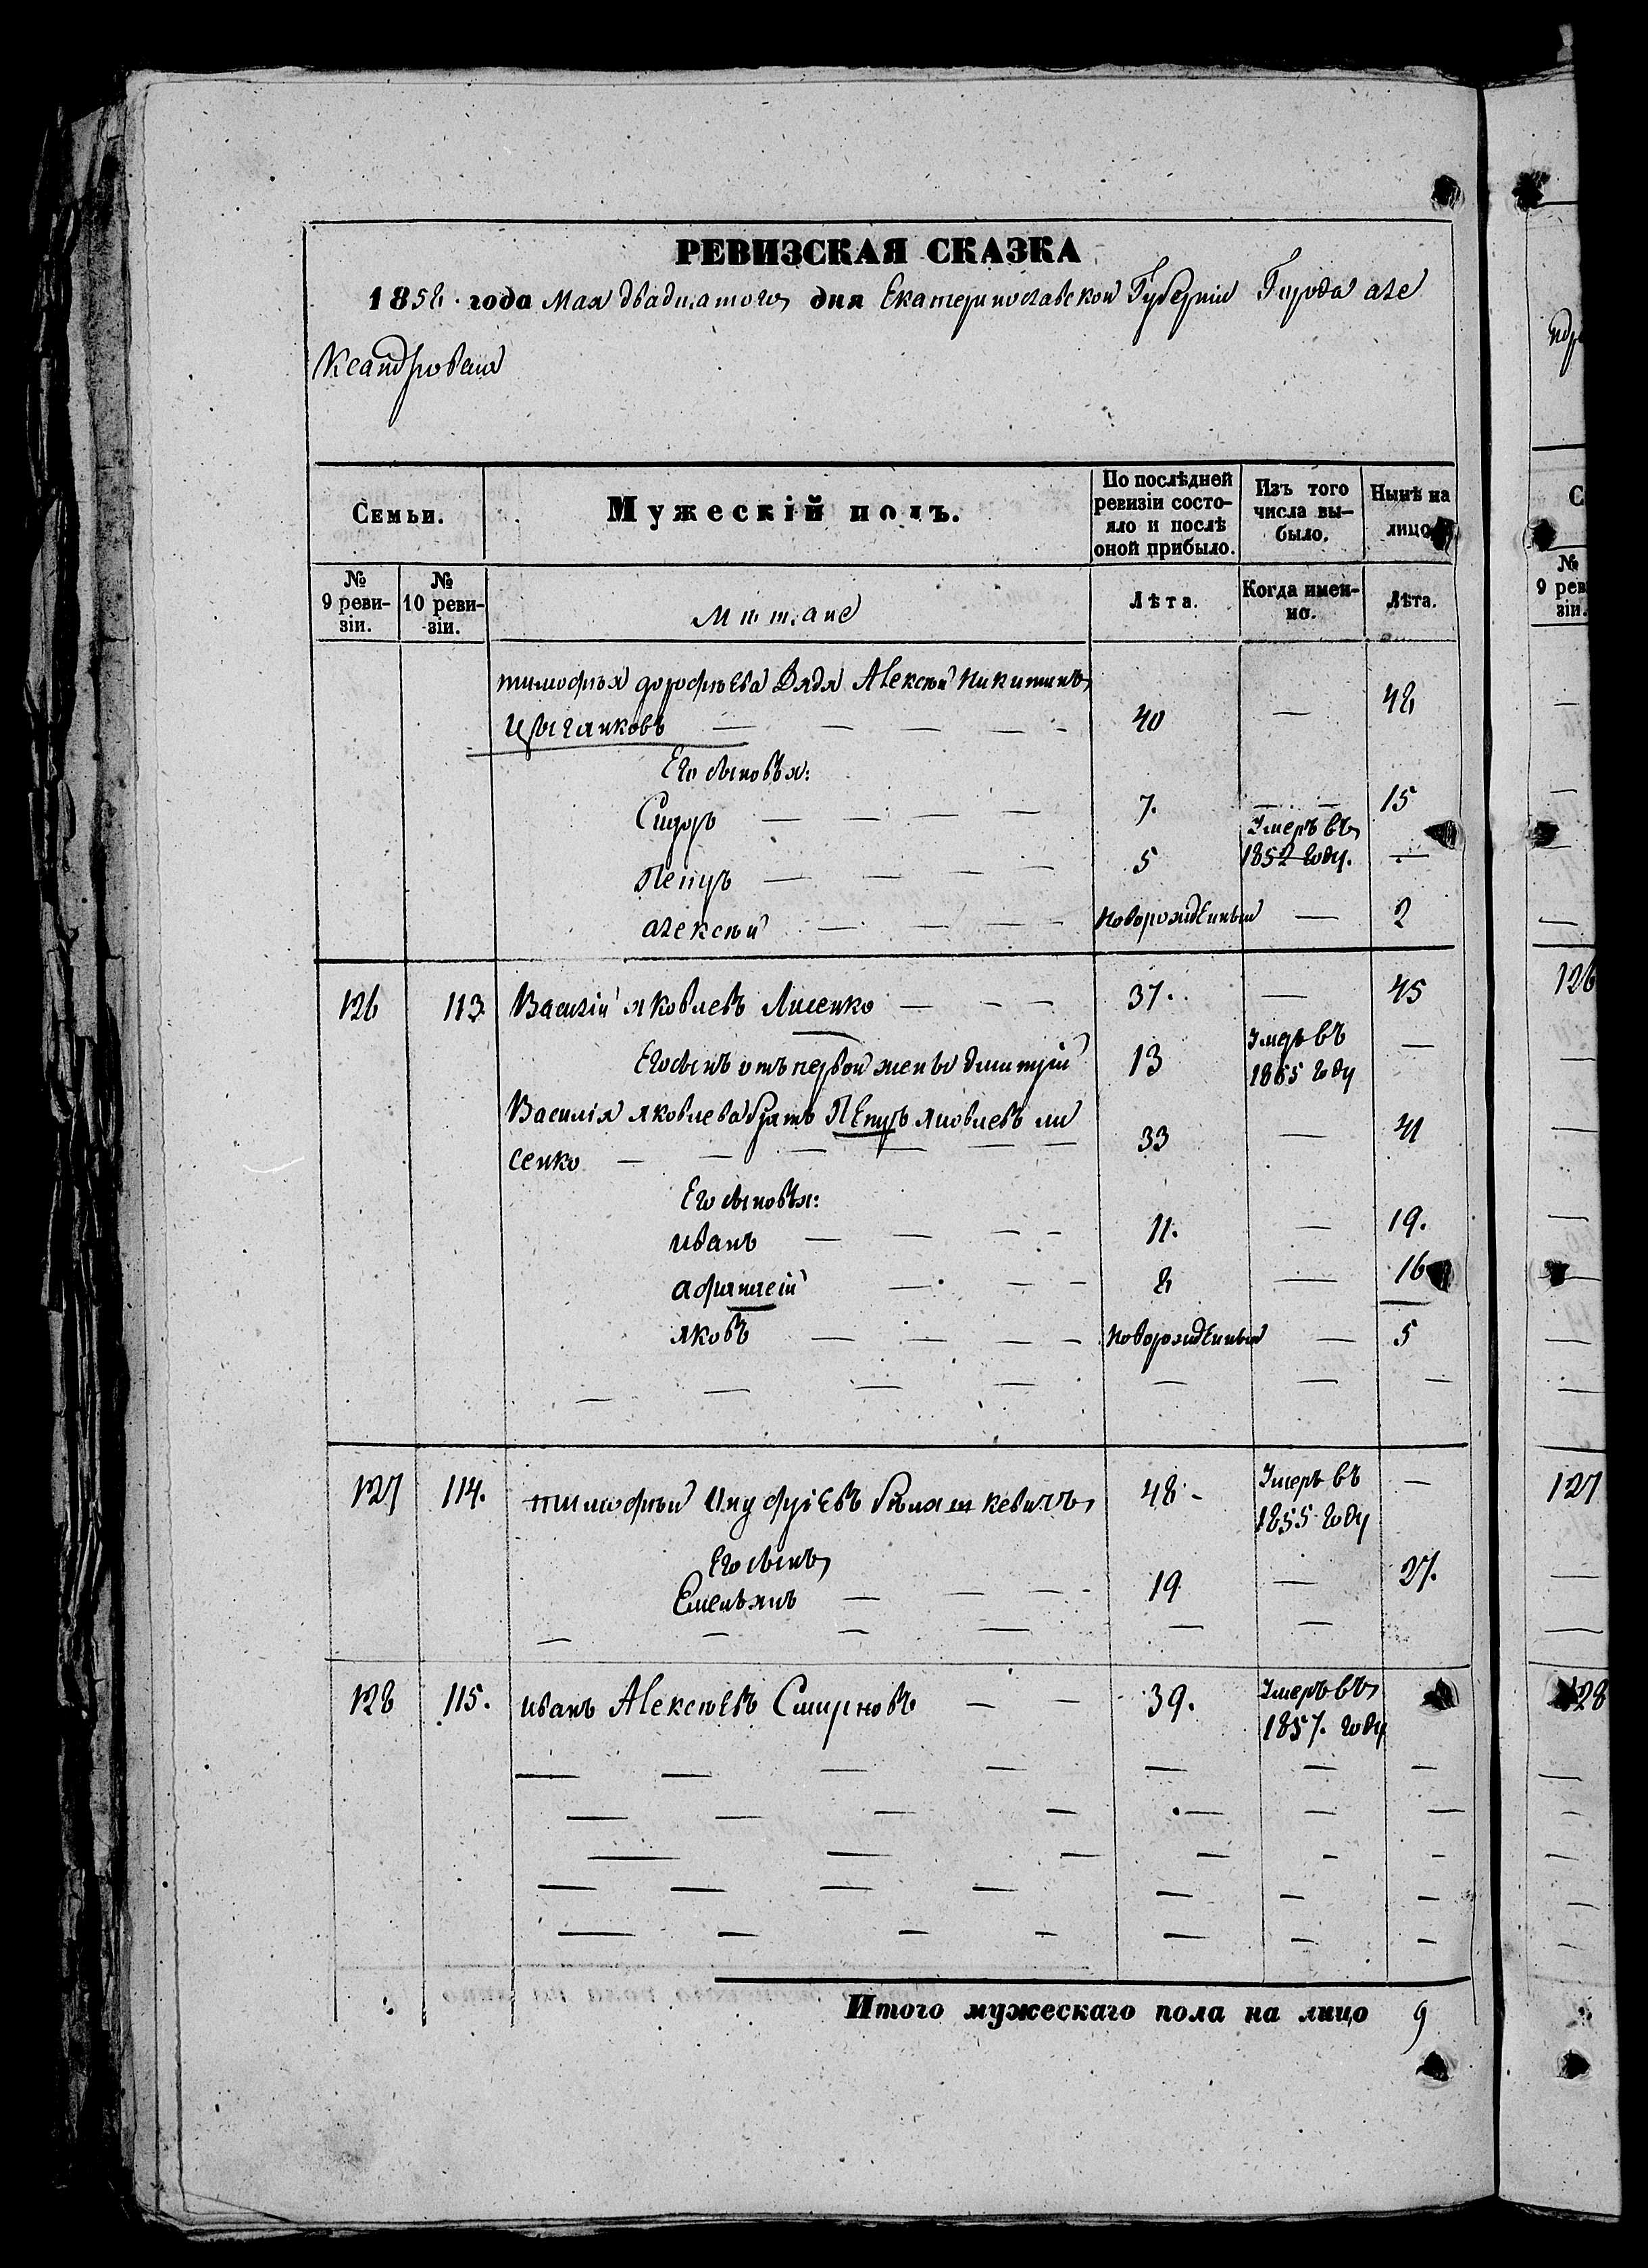 РЕВИЗСКАЯ СКАЗКА
1858 года Мая двадцатого дня Екатеринославской Губерніи Города але
ксандровска
Семьи.
Мужескій полъ.
По послѣдней ревизіи состояло и послѣ оной прибыло.
Изъ того числа вы-было.
Нынѣ на лицо
№ 9 реви-зіи.
№ 10 реви-зіи.
Мѣщане
Лѣта.
Когда имен-но.
Лѣта.
тимофѣя дорофѣева Дядя Алексѣй Никитинъ
Цыганковъ — — — — - 40 — 48
Его сыновья:
Сидоръ — — — — 7. — — 15
Петръ — — — — 5 Умеръ въ 1852 году. —
алексѣй — — — — Новорожденный — 2
126 113. Василій яковлевъ Лисенко — — — 37. — 45
Его сынъ отъ первой жены дмитрій 13 Умеръ въ 1855 году —
Василія яковлева братъ Петръ яковлевъ ли
сенко — — — — — — 33 — 41
Его сыновья:
иванъ — — — - 11. — 19.
афанасій — — - 8 — 16
яковъ — — — - Новорожденный — 5
— — — — — — —
127 114. тимофѣй Ануфріевъ кевичъ 48 - Умеръ въ 1855 году —
Его сынъ
Емельянъ — — — - 19 — 27.
— — — — — —
128 115. иванъ Алексѣевъ Смирновъ — — 39. Умеръ въ 1857. году
— — — — — — —
— — — — — — —
— — — — — —
— — — — — — —
— — — — — — —
Итого мужескаго пола на лицо 9
ндро
С
№
9 рев
зіи.
126
127
128